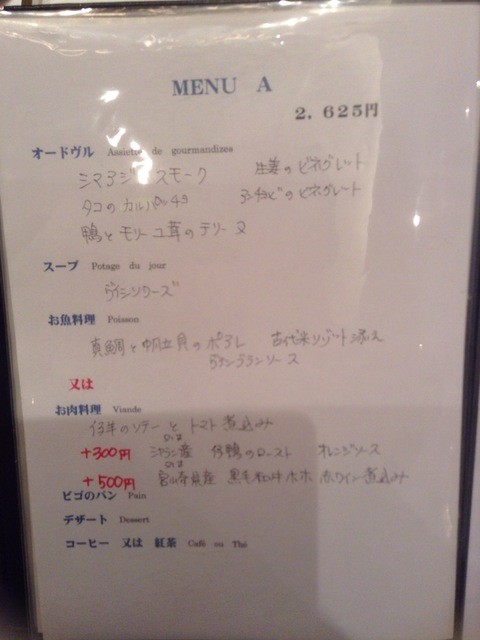 MENU A
2,625円
オードヴル Assiette de gourmandizes
シマアジ スモーク 生姜の ビネグレット
タコの カルパッチョ アンチョビの ビネグレット
鴨と モリーユ茸の テリーヌ
スープ Potage du jour
ヴィシソワーズ
お魚料理 Poisson
真鯛と 帆立貝の ポアレ 古代米リゾット添え
ソース
又は
お肉料理 Viande
仔羊のソテーと トマト煮込み
+300円 シャラン産 仔鴨のロースト オレンジソース
+500円 宮崎県産 黒毛和牛ホホ 赤ワイン煮込み
ビゴのパン Pain
デザート Dessert
コーヒー 又は 紅茶 Café ou Thé